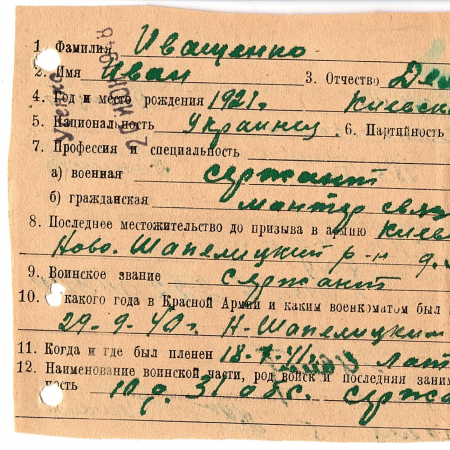 1. Фамилия Иващенко
2. Имя Иван 3. Отчество Дем
4. Год и место рождения 1921г. Киевск
5. Национальность Украинец. 6. Партийность
7. Профессия и специальность
а) военная сержант
б) гражданская монтер связ
8. Последнее местожительство до призыва в армию Киев
Ново. Шапелицкий р-н д.
9. Воинское звание сержант
10. какого года в Красной Армии и каким военкоматом был
29-9-40г. Н-Шапелицким
11. Когда и где был пленен 18-7-41г. Лат
12. Наименование воинской части, род войск и последняя заним
ность 10 д. 31 обс. сержа